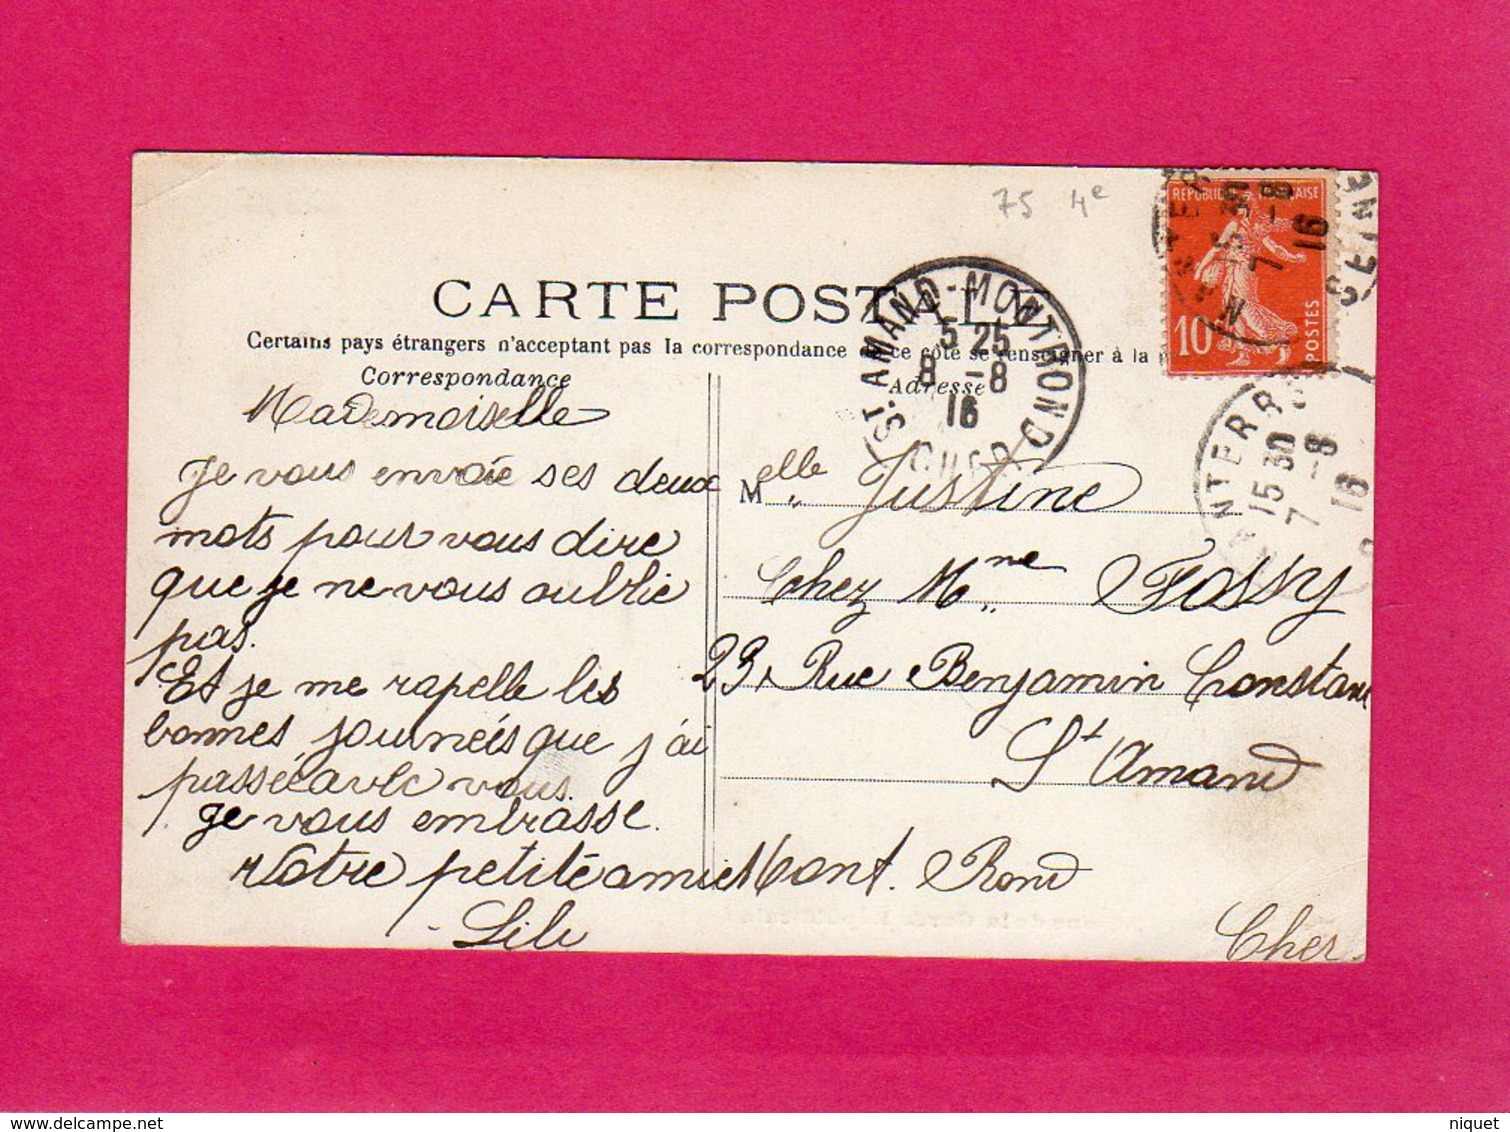 75 4e
REPUBLIQUE FRANÇAISE
10
POSTES
CARTE POSTALE
Certains pays étrangers n'acceptant pas la correspondance de ce côté se renseigner à la
Correspondance
Adresse
ST. AMAND-MONTROND
5 25
8 -8
16
CHER
NANTERRE
15 30
7 -8
16
SEINE
Mademoiselle
Je vous envoie ses deux
mots pour vous dire
que je ne vous oublie
pas.
Et je me rapelle les
bonnes journeés que j'ai
passée avec vous.
Je vous embrasse.
Votre petite amie
Lili
Melle Justine
Chez Mme Fossy
23, Rue Benjamin Constant
St Amand
Mont. Rond
Cher
delcampe.net
niquet